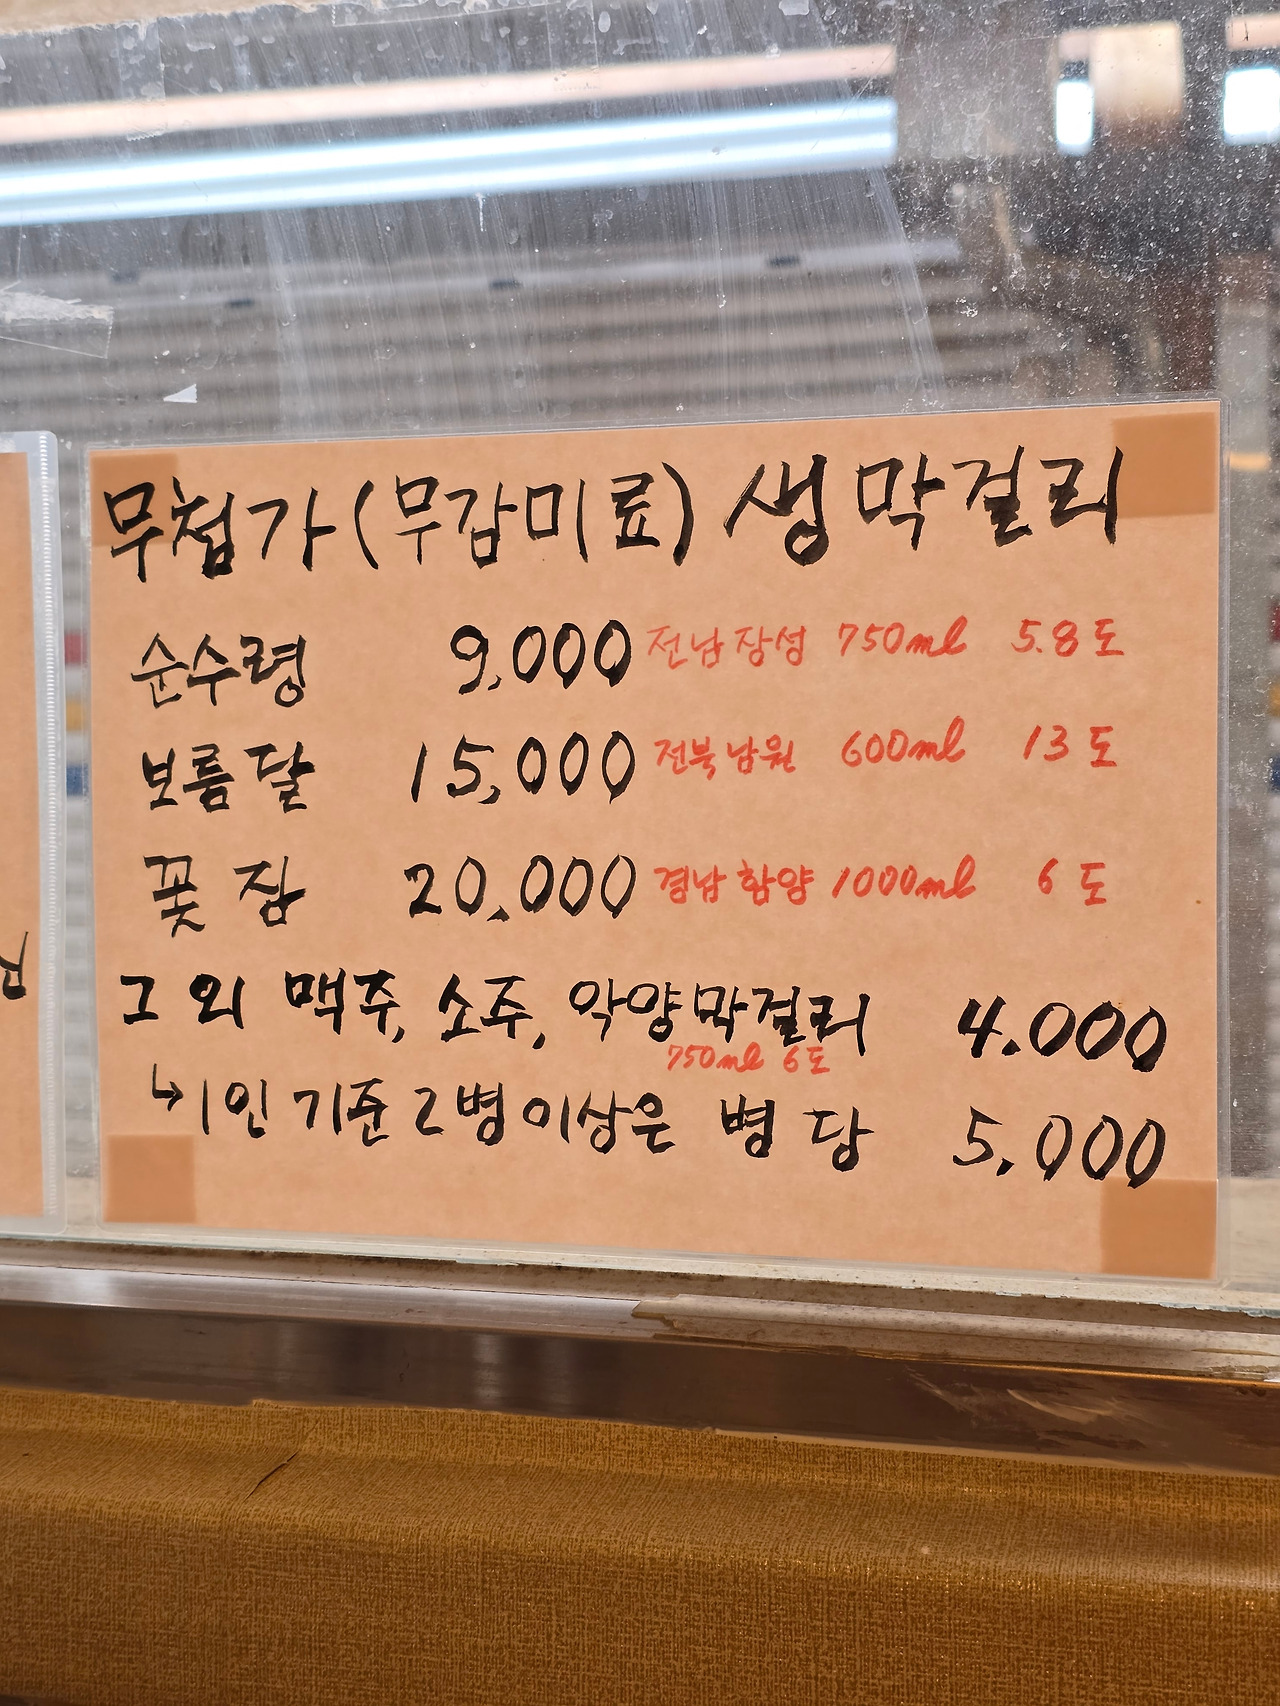 무첨가(무감미료) 생막걸리
순수령 9,000 전남장성 750ml 5.8도
보름달 15,000 전북남원 600ml 13도
꽃잠 20,000 경남함양 1000ml 6도
그 외 맥주, 소주, 악양막걸리 4.000
750ml 6도
↳1인 기준 2병이상은 병당 5,000